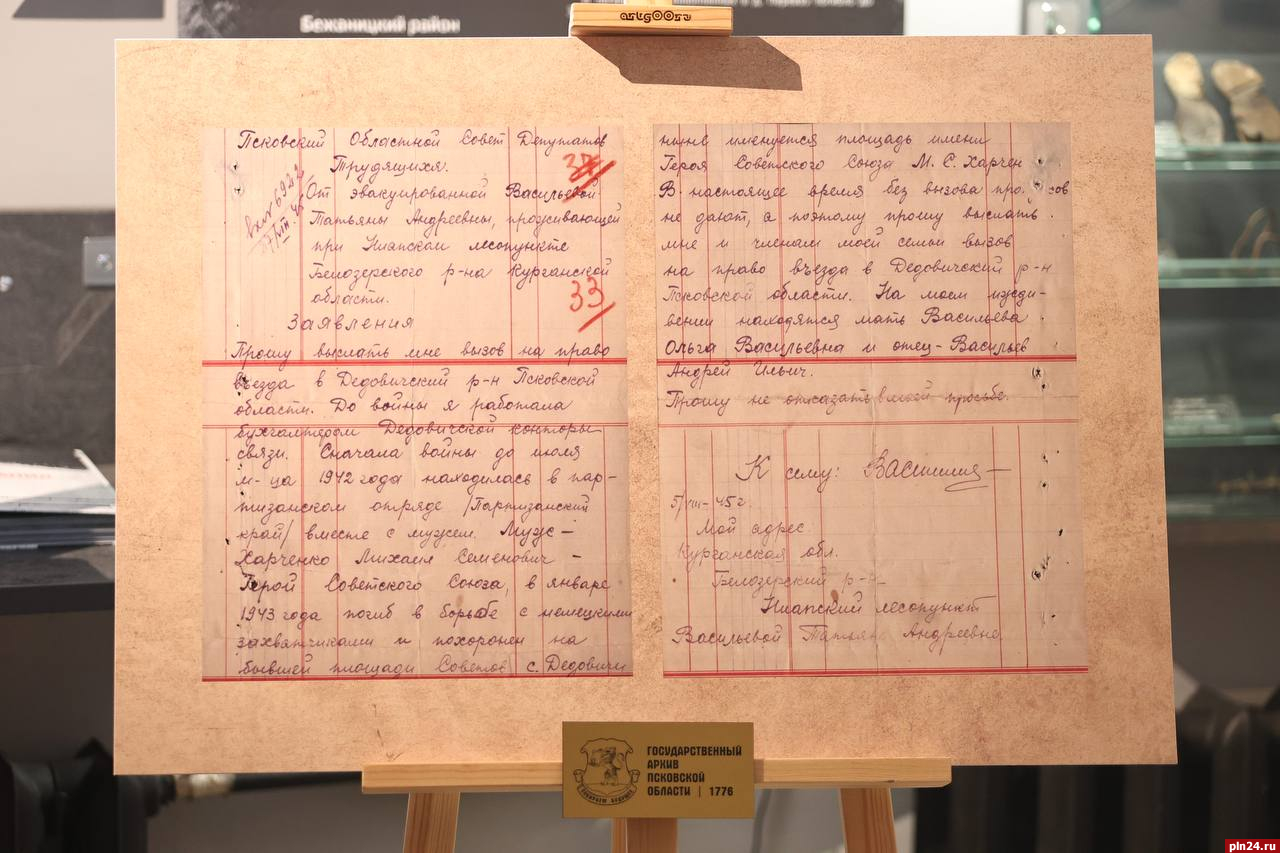 Бежаницкий район
artgOO.ru
Псковский Областной Совет Депутатов
Трудящихся.
От эвакуированной Васильевой
Татьяны Андреевны, проживающей
при Ниапском лесопункте
Белозерского р-на Курганской
области.
вх № 6922
37
33
Заявления
Прошу выслать мне вызов на право
въезда в Дедовичский р-н Псковской
области. До войны я работала
бухгалтером Дедовичской конторы
связи. Сначала войны до июля
м-ца 1942 года находилась в пар-
тизанском отряде /Партизанский
край/ вместе с мужем. Муж -
Харченко Михаил Семенович -
Герой Советского Союза, в январе
1943 года погиб в борьбе с немецкими
захватчиками и похоронен на
бывшей площади Советов с. Дедовичи
ныне именуется площадь имени
Героя Советского Союза М. С. Харчен
В настоящее время без вызова про сов
не дают, а поэтому прошу выслать
мне и членам моей семьи вызов
на право въезда в Дедовичский р-н
Псковской области. На моем ижди-
вении находятся мать Васильева
Ольга Васильевна и отец - Васильев
Андрей Ильич.
Прошу не отказать в моей просьбе.
К сему:
5/VIII-45 г.
Мой адрес:
Курганская обл.
Белозерский р-н
Ниапский лесопункт
Васильевой Татьяне Андреевне.
ГОСУДАРСТВЕННЫЙ
АРХИВ
ПСКОВСКОЙ
ОБЛАСТИ | 1776
pln24.ru